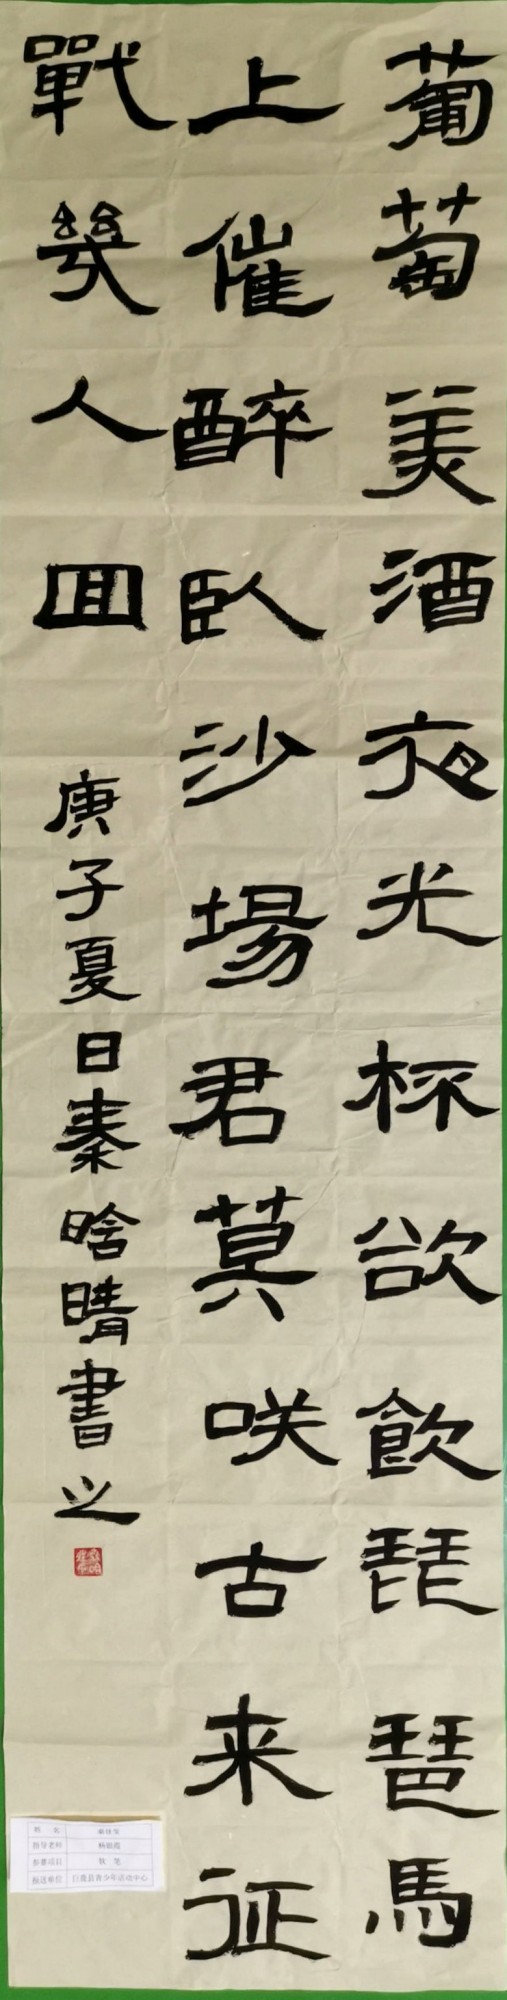 葡萄美酒夜光杯欲飲琵琶馬
上催醉臥沙場君莫咲古来征
戰幾人回
庚子夏日秦晗晴書之
姓名
指导老师 杨娟霞
参赛项目 软笔
报送单位 巨鹿县青少年活动中心